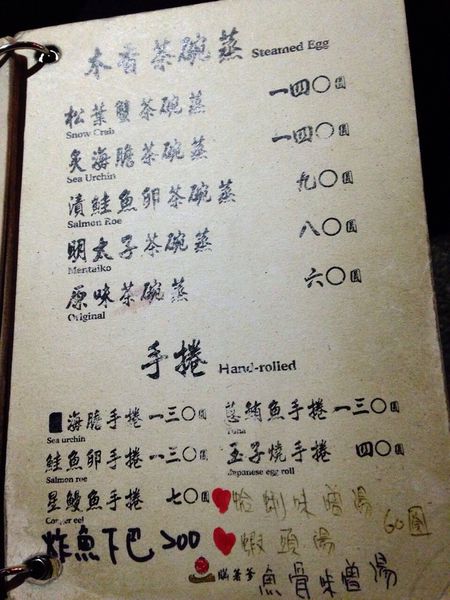 本香茶碗蒸 Steamed Egg
松葉蟹茶碗蒸 一四〇圓
Snow Crab
炙海膽茶碗蒸 一四〇圓
Sea Urchin
漬鮭魚卵茶碗蒸 九〇圓
Salmon Roe
明太子茶碗蒸 八〇圓
Mentaiko
原味茶碗蒸 六〇圓
Original
手捲 Hand-rolled
海膽手捲 一三〇圓
Sea urchin
蔥鮪魚手捲 一三〇圓
Tuna
鮭魚卵手捲 一三〇圓
Salmon roe
玉子燒手捲 四〇圓
Japanese egg roll
星鰻魚手捲 七〇圓
Conger eel
蛤蜊味噌湯
炸魚下巴 200
蝦頭湯 60圓
魚骨味噌湯